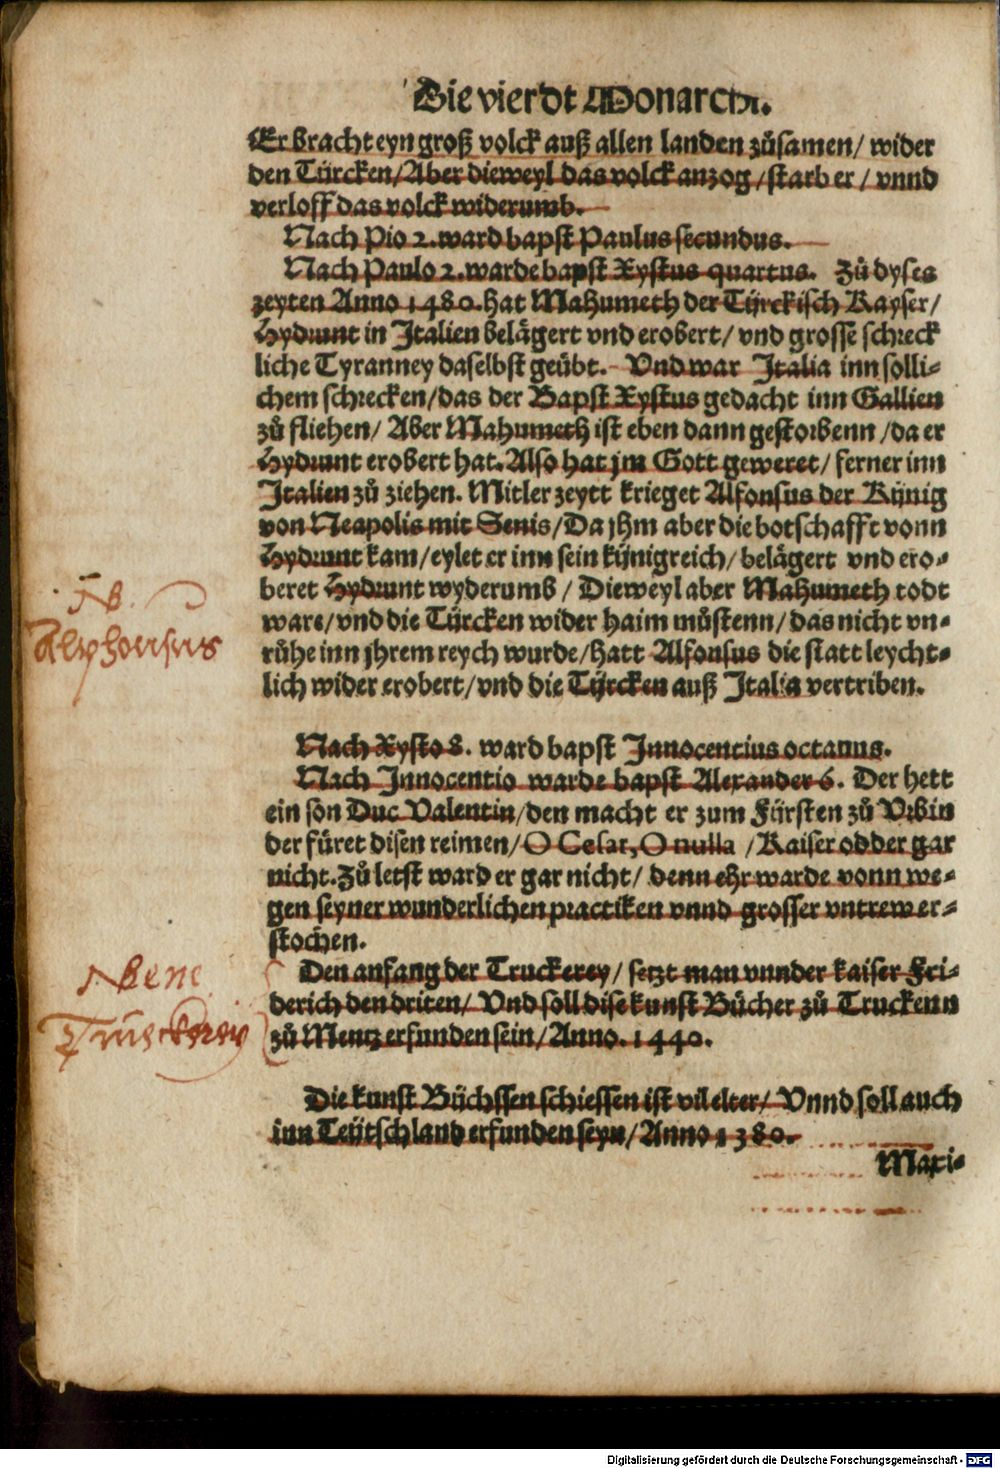 Die vierdt Monarchi.
Er bracht eyn groß volck auß allen landen zůsamen/ wider
den Türcken/ Aber dieweyl das volck anzog/ starb er/ vnnd
verloff das volck widerumb.
Nach Pio 2. ward bapst Paulus secundus.
Nach Paulo 2. warde bapst Xystus quartus. Zů dyses
zeyten Anno 1480. hat Mahumeth der Türckisch Kayser/
Hydrunt in Italien belägert vnd erobert/ vnd grosse schreck
liche Tyranney daselbst geübt. Vnd war Italia inn solli-
chem schrecken/ das der Bapst Xystus gedacht inn Gallien
zů fliehen/ Aber Mahumeth ist eben dann gestorbenn/ da er
Hydrunt erobert hat. Also hat jm Gott geweret/ ferner inn
Italien zů ziehen. Mitler zeytt krieget Alfonsus der Künig
von Neapolis mit Senis/ Da jhm aber die botschafft vonn
Hydrunt kam/ eylet er inn sein künigreich/ belägert vnd ero-
beret Hydrunt wyderumb/ Dieweyl aber Mahumeth todt
ware/ vnd die Türcken wider haim můstenn/ das nicht vn-
rühe inn jhrem reych wurde/ hatt Alfonsus die statt leycht-
lich wider erobert/ vnd die Türcken auß Italia vertriben.
NB.
Alphonsus
Nach Xysto 8. ward bapst Innocentius octauus.
Nach Innocentio warde bapst Alexander 6. Der hett
ein son Duc Valentin/ den macht er zum Fürsten zů Vrbin
der füret disen reimen/ O Cesar, O nulla/ Kaiser odder gar
nicht. Zů letst ward er gar nicht/ denn ehr warde vonn we-
gen seyner wunderlichen practiken vnnd grosser vntrew er-
stochen.
Den anfang der Truckerey/ setzt man vnnder kaiser Fri-
derich den driten/ Vnd soll dise kunst Bücher zů Truckenn
zů Mentz erfunden sein/ Anno. 1440.
Nbene
Truckerey
Die kunst Büchssen schiessen ist vil elter/ Vnnd soll auch
inn Teütschland erfunden seyn/ Anno 1380.
Maxi-
Digitalisierung gefördert durch die Deutsche Forschungsgemeinschaft - DFG